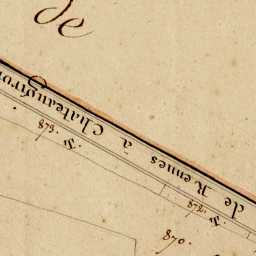 de
de Rennes à Chateaugiron
873.
872.
870.